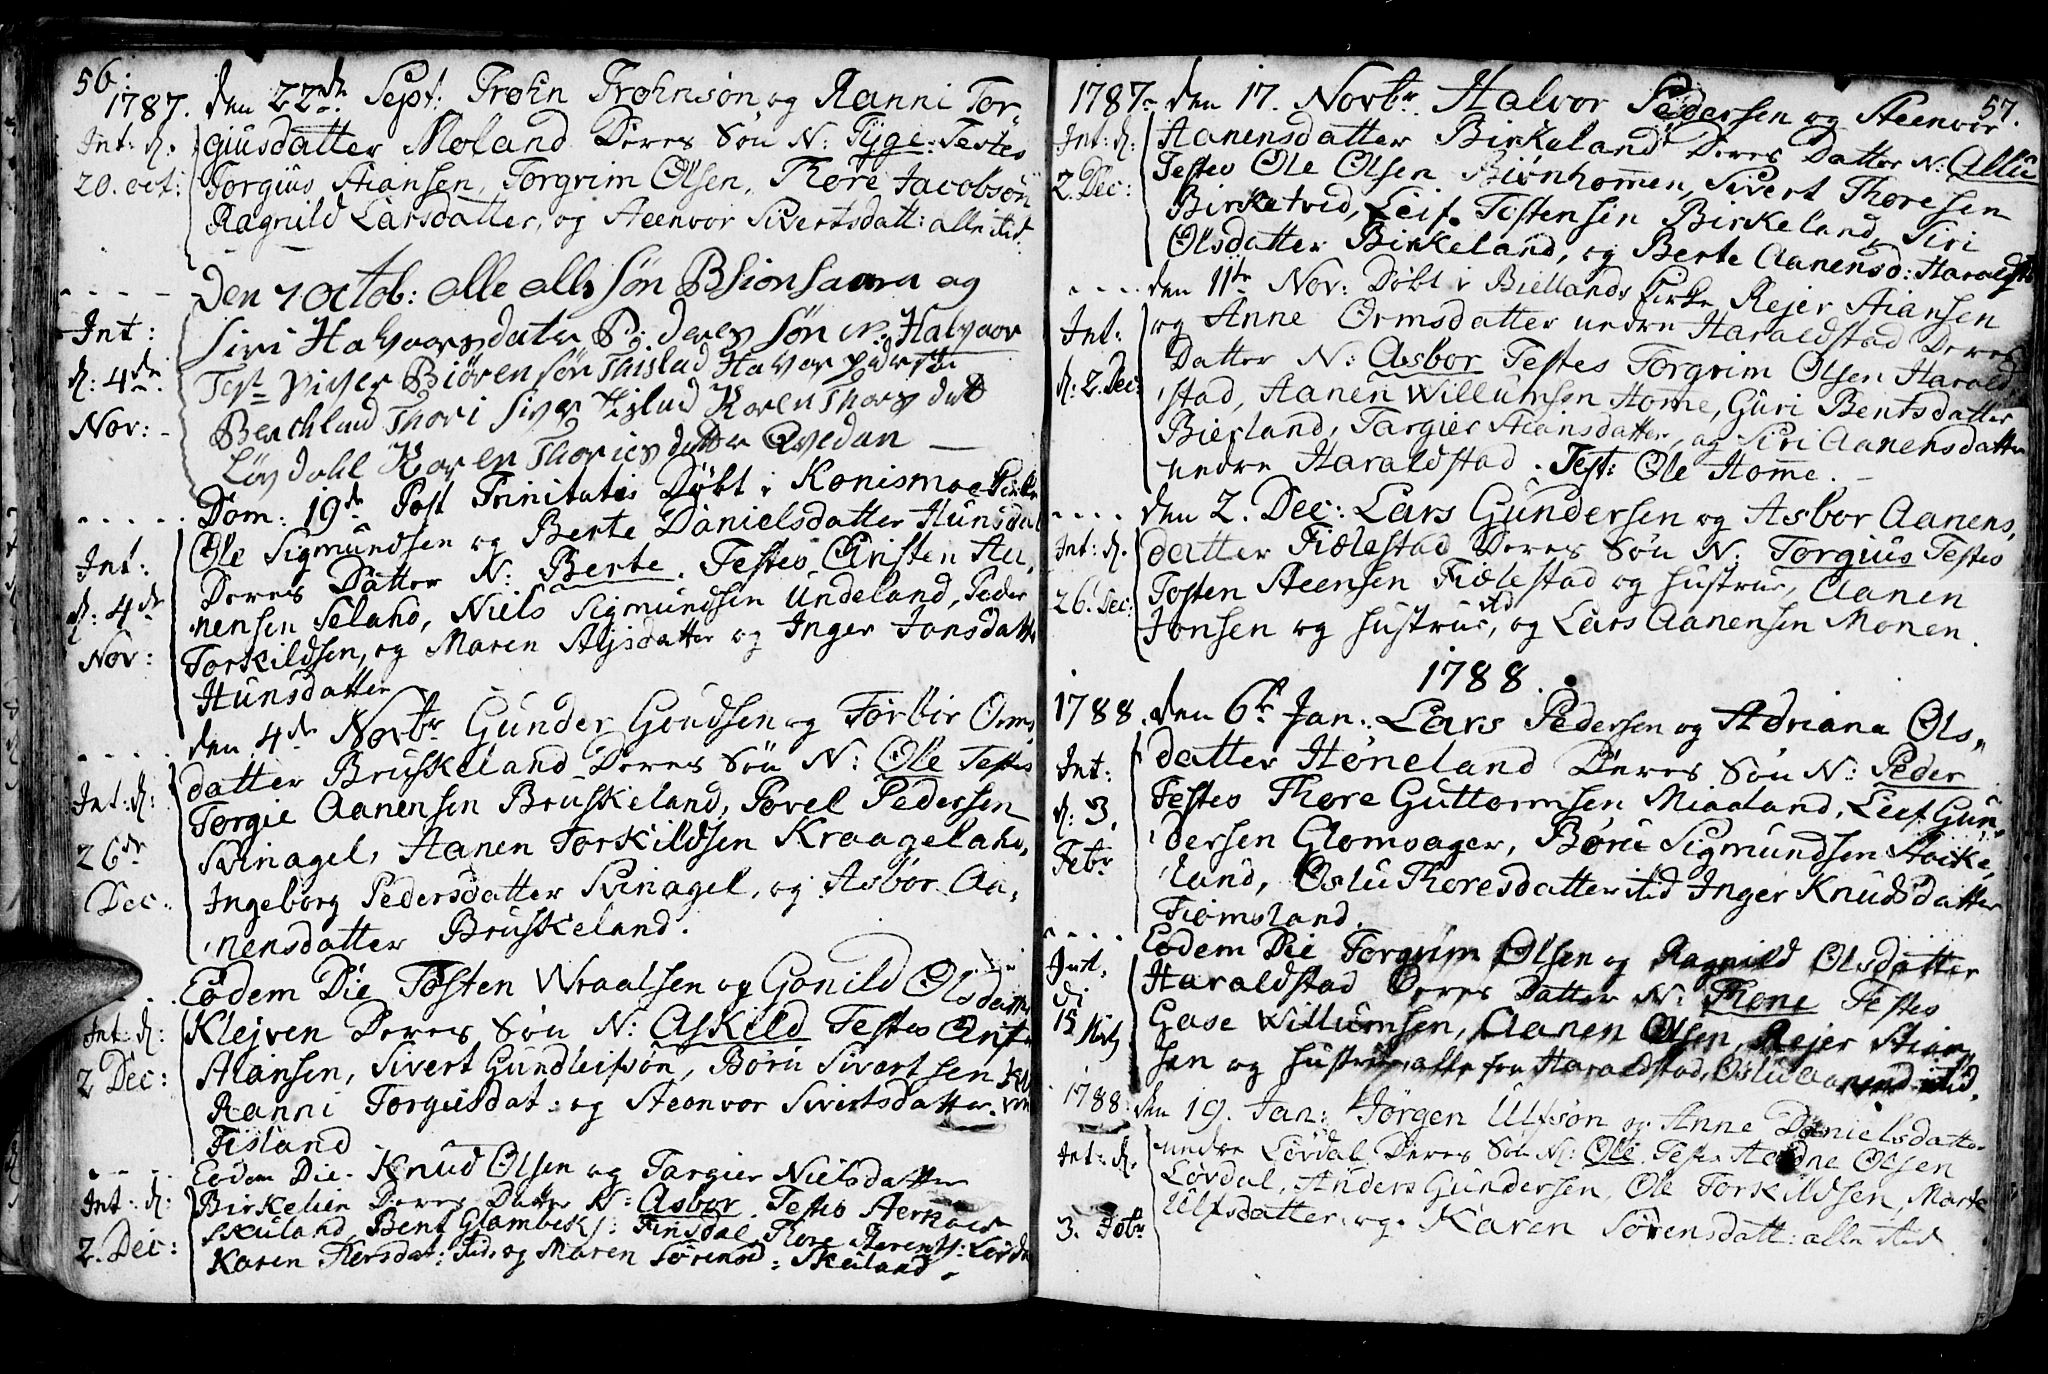 56.
1787. den 22de Sept: Trøhn Trøhnsøn og Ranni Tor-
Int: d. giusdatter Moland Deres Søn N: Tÿge. Testes
20. oct: Torgius Aiansen, Torgrim Olsen, Thore Jacobsøn
Ragnild Larsdatter, og Steenvor Sivertsdatt: alle itid.
Den 7 octob: olle olls søn
Int: siri Halvaarsdater deres søn N: Halvaar
d: 4de Test Biøren søn Thislad Halvor
Nov: - Thori Karen
Løvdahl Karen Thoriesdatter Qvedan
Dom: 19de Post Trinitatis Døbt i Konismoe Kirke
Int: Ole Sigmundsen og Berte Danielsdatter Hunsdal
d: 4de Deres Datter N: Berte. Testes Christen Aa,
Nov: nensen Seland, Niels Sigmundsen Undeland, Peder
Torkildsen, og Maren Aÿsdatter og Inger Jonsdatter
Hunsdatter
den 4de Novbr Gunder Goudsen og Torbir Orms,
Int: d: datter Bruskeland Deres Søn N: Ole Testes
Torgie Aanensen Bruskeland, Povel Pedersen
26de Svinagel, Aanen Torkildsen Kraageland,
Dec: Ingeborg Pedersdatter Svinagel, og Asbor Aa,
nensdatter Bruskeland.
Eodem Die Tosten Wraalsen og Gonild Olsdatter
Int: d: Klejven Deres Søn N: Askild Testes
2 Dec: Aiansen, Sivert Gundleifsøn, Børu Sivertsen
Ranni Torgiusdat: og Steenvor Sivertsdatter
Fisland
Eodem Die. Knud Olsen og Targier Nielsdatter
Int: d: Birkelien Deres Datter N: Asbor. Testes
2. Dec: Skuland, Bent Finsdal, Thore
Karen itid, og Maren Sørensd: Skeiland.
57.
1787. den 17. Novbr. Halvor Pedersen og Steenvor
Int: d: Aanensdatter Birkeland Deres Datter N: Allu
2. Dec: Testes Ole Olsen Biønhommen, Sivert Thoresen
Birketvid, Leif Tostensen Birkeland, Siri
Olsdatter Birkeland, og Berte Aanensd: Haraldst
den 11te Nov: Døbt i Biellands Kirke Rejer Aiansen
Int: og Anne Ormsdatter nedre Haraldstad Deres
d: 2. Dec: Datter N: Asbor Testes Torgrim Olsen Harald
stad, Aanen Willumsen Home, Guri Bentsdatter
Bierland, Targier Aiansdatter, og Siri Aanensdatter
nedre Haraldstad. Test: Ole Home. -
den 2. Dec: Lars Gundersen og Asbor Aanens,
Int: d. datter Fidlestad Deres Søn N: Torgius Testes
26. Dec: Tosten Steensen Fidlestad og hustrue, Aanen
Jonsen og hustrue itid, og Lars Aanensen Monen.
1788.
1788. den 6te Jan: Lars Pedersen og Adriana Ols,
Int: datter Høneland Deres Søn N: Peder
d: 3. Testes Thore Guttormsen Miaaland, Leif Gun,
Febr dersen Glomsager, Børu Sigmundsen Stokke,
land, Oslu Thoresdatter itid Inger Knudsdatter
Tiomsland.
Int: Eodem Die Torgrim Olsen og Ragnild Olsdatter
Haraldstad Deres Datter N: Thone Testes
15 Gase Willumsen, Aanen Olsen, Rejer Aian,
sen og hustrue alle fra Haraldstad, Oslu Aanensd itid.
1788: den 19. Jan: Jørgen Ulfsøn og Anne Danielsdatter
Int: d. nedre Løvdal Deres Søn N: Ole. Testes Olsen
Løvdal, Anders Gundersen, Ole Torkildsen, Marte
3. Febr Ulfsdatter, og Karen Sørensdatt: alle itid